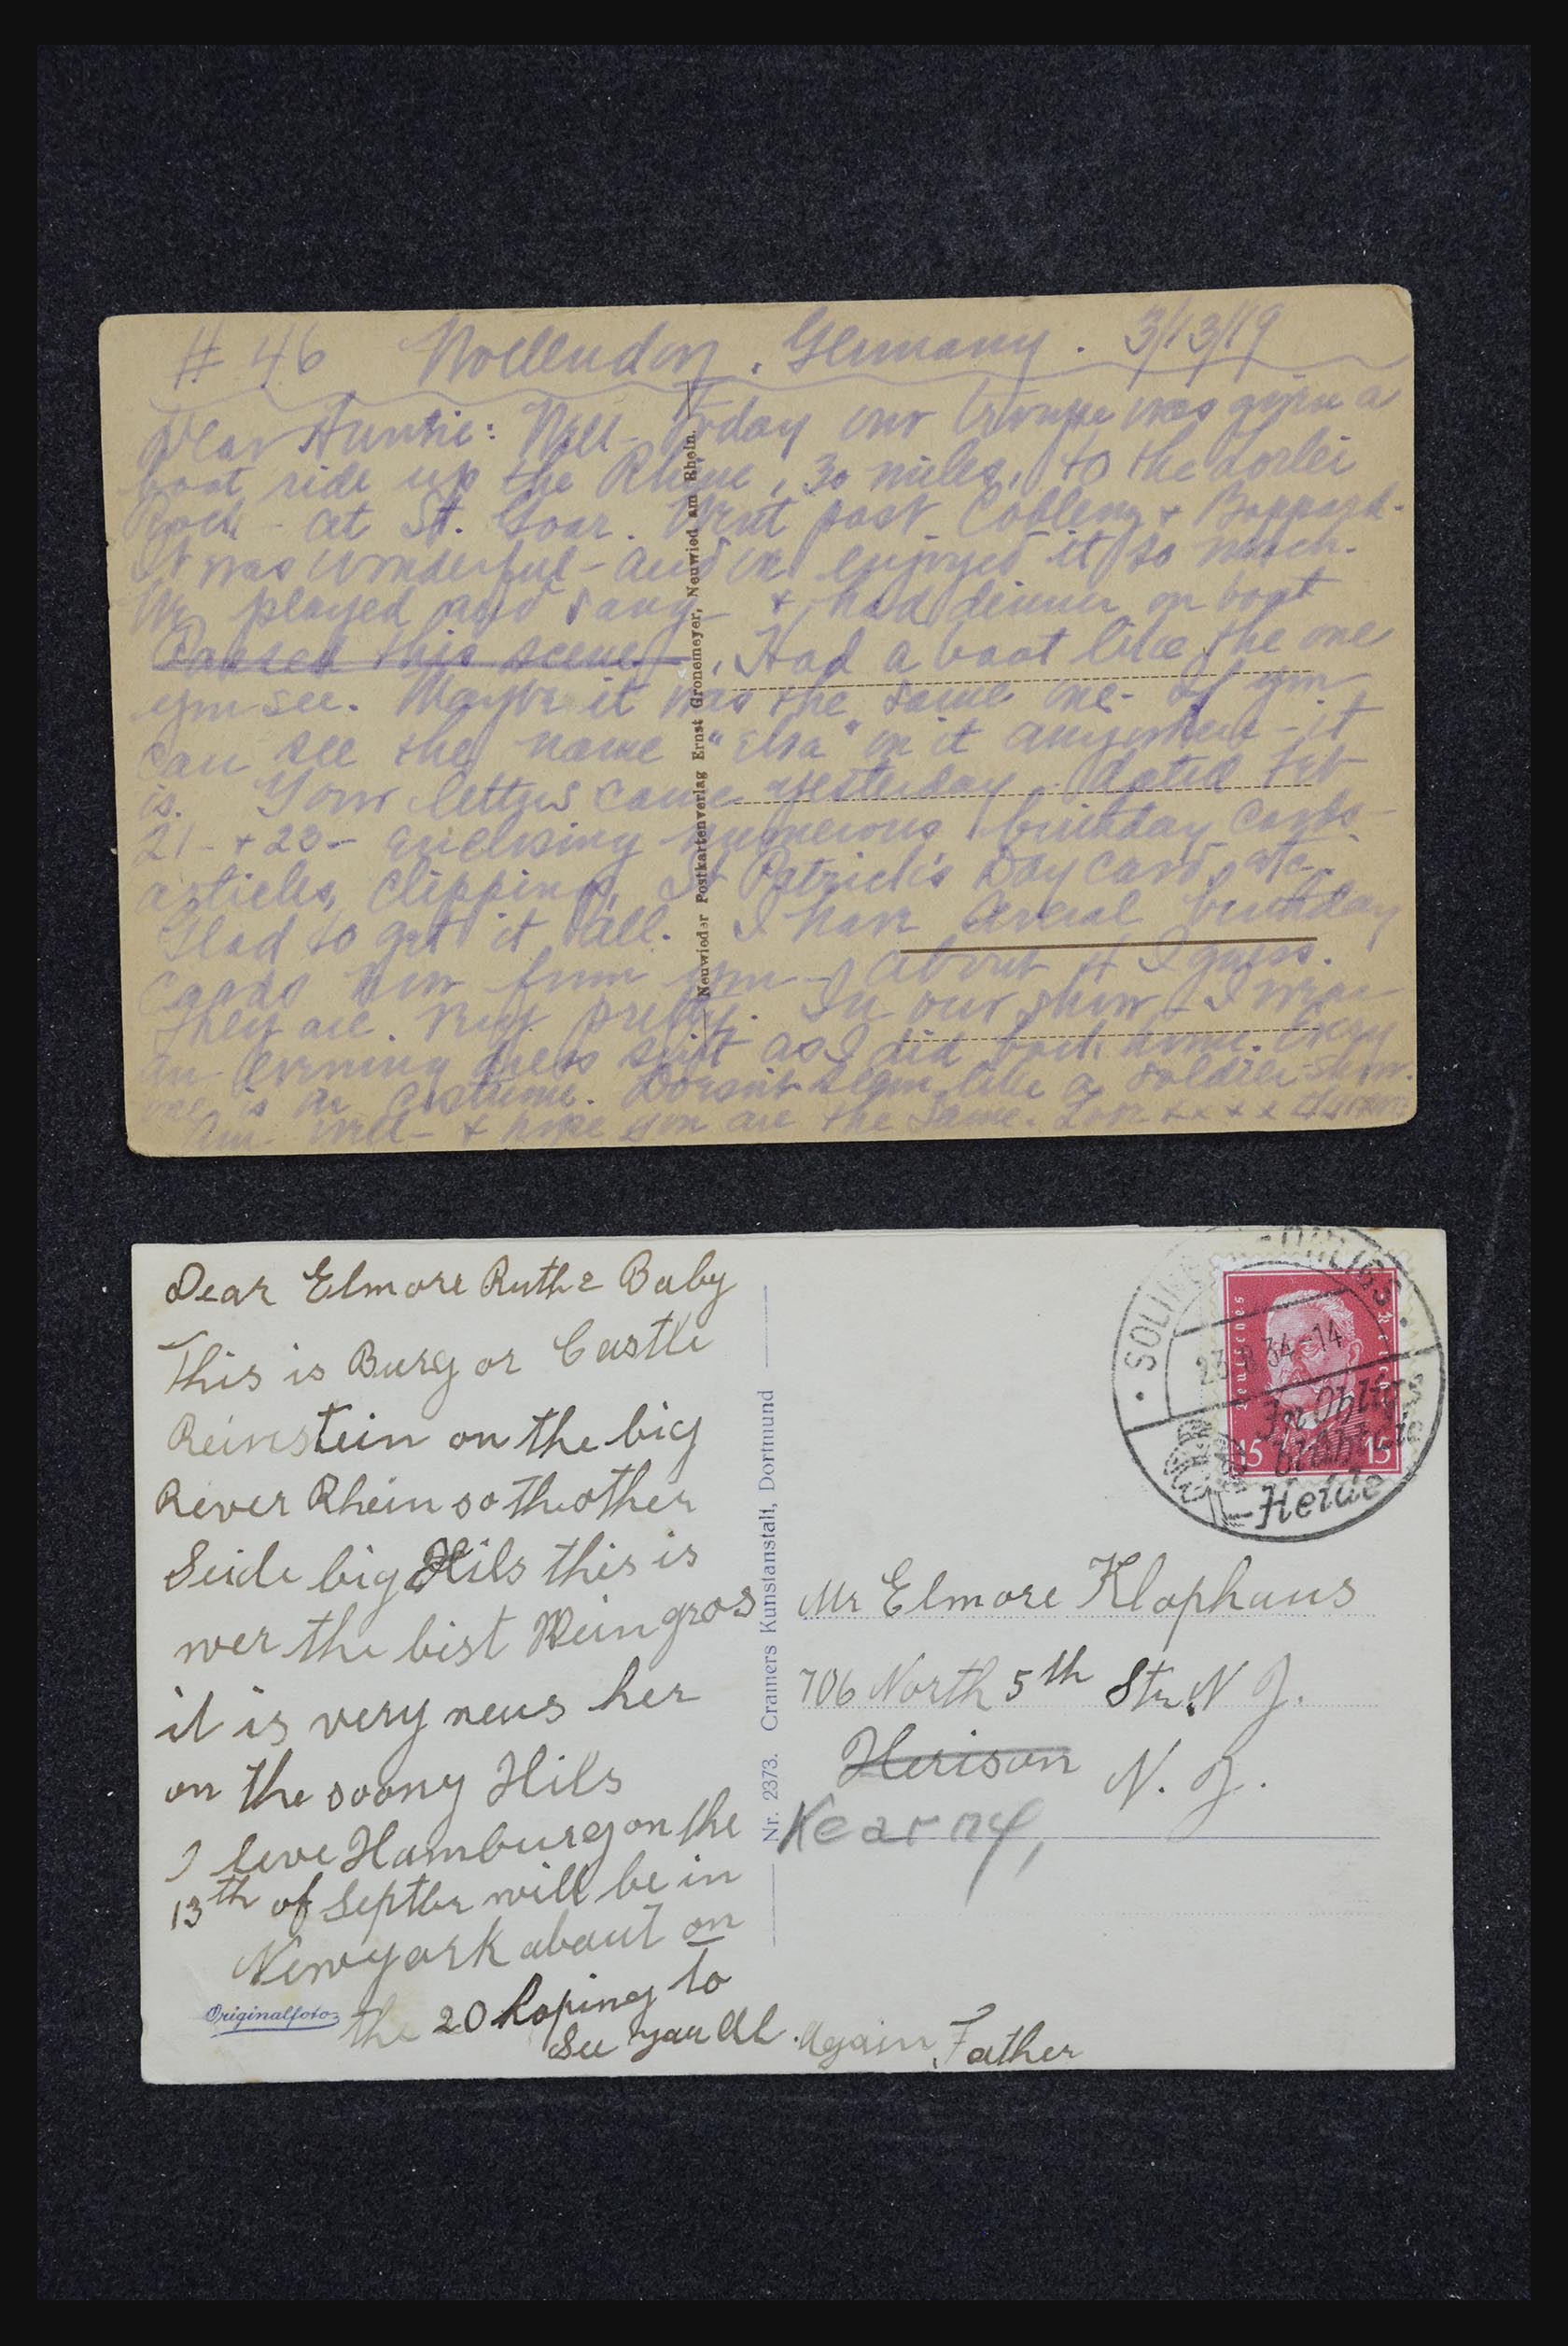 # 46 Wollendorf, Germany. 3/13/19
Dear Auntie: Well - Today our troupe was given a
boat ride up the Rhine, 30 miles, to the Lorlei
Rock - at St. Goar. Went past Coblenz + Boppard.
It was wonderful - and we enjoyed it so much.
We played and sang - + had dinner on boat
Passed this scene. Had a boat like the one
you see. Maybe it was the same one - If you
can see the name "Elsa" on it anywhere - it
is. Your letters came yesterday dated Feb
21 - + 23 - enclosing numerous birthday cards -
articles, clippings, St Patrick's Day card, etc.
Glad to get it all. I have several birthday
cards now from you - about 4 I guess.
They are very pretty. In our show - I wear
an evening dress suit as I did back home. Every
one is in costume. Doesn't seem like a soldier show.
Am well - + hope you are the same. Love x x x x
Neuwieder Postkartenverlag Ernst Gronemeyer, Neuwied am Rhein.
Dear Elmore Ruth & Baby
This is Burg or Castle
Reinstein on the big
River Rhein so the other
Seide big Hils this is
wer the bist Wein gros
it is very neus her
on the soony Hils
I leve Hamburg on the
13th of Septbr will be in
Newyork about on
the 20 hoping to
See you All. Again, Father
Originalfoto
Nr. 2373. Cramers Kunstanstalt, Dortmund
Deutsches Reich
15 15
SOLINGEN-OHLIGS
23.8.34-14
Ohligs
-Heide
Mr Elmore Klophaus
706 North 5th Str. N J.
Herison N. J.
Kearny,